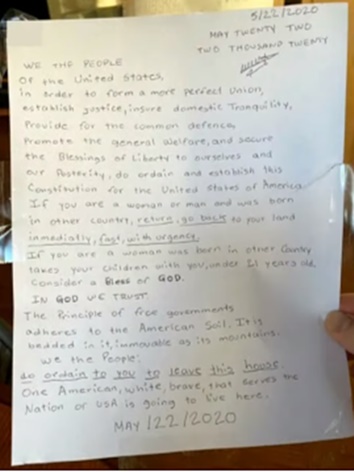 5/22/2020
MAY TWENTY TWO
TWO THOUSAND TWENTY
WE THE PEOPLE
Of the United States,
in order to form a more perfect Union,
establish justice, insure domestic Tranquility,
Provide for the common defence,
Promote the general Welfare, and secure
the Blessings of Liberty to ourselves and
our Posterity, do ordain and establish this
Constitution for the United States of America
If you are a woman or man and was born
in other country, return, go back to your land
immediatly, fast, with urgency.
If you are a woman was born in other Contry
takes your children with you, under 21 years old.
Consider a Bless of GOD.
IN GOD WE TRUST.
The Principle of free governments
adheres to the American Soil. It is
bedded in it, immovable as its mountains.
We the People:
do ordain to you to leave this house.
One American, white, brave, that serves the
Nation or USA is going to live here.
MAY/22/2020